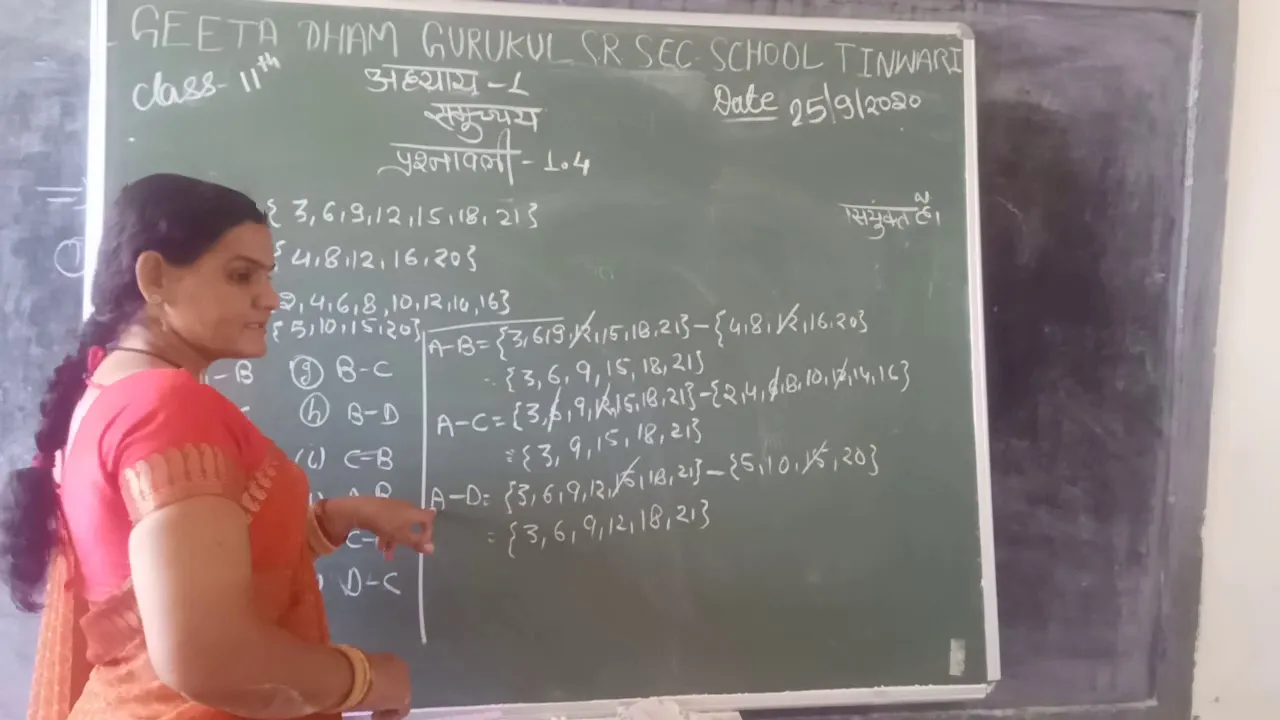 GEETA DHAM GURUKUL SR SEC SCHOOL TINWARI
class-11th
अध्याय-1
Date 25/9/2020
समुच्चय
प्रश्नावली-1.4
{3,6,9,12,15,18,21}
संयुक्त है।
{4,8,12,16,20}
2,4,6,8,10,12,14,16}
{5,10,15,20}
A-B={3,6,9,12,15,18,21}-{4,8,12,16,20}
-B (g) B-C
={3,6,9,15,18,21}
(h) B-D
A-C={3,6,9,12,15,18,21}-{2,4,6,8,10,12,14,16}
={3,9,15,18,21}
(i) C-B
A-D={3,6,9,12,15,18,21}-{5,10,15,20}
={3,6,9,12,18,21}
C-
D-C